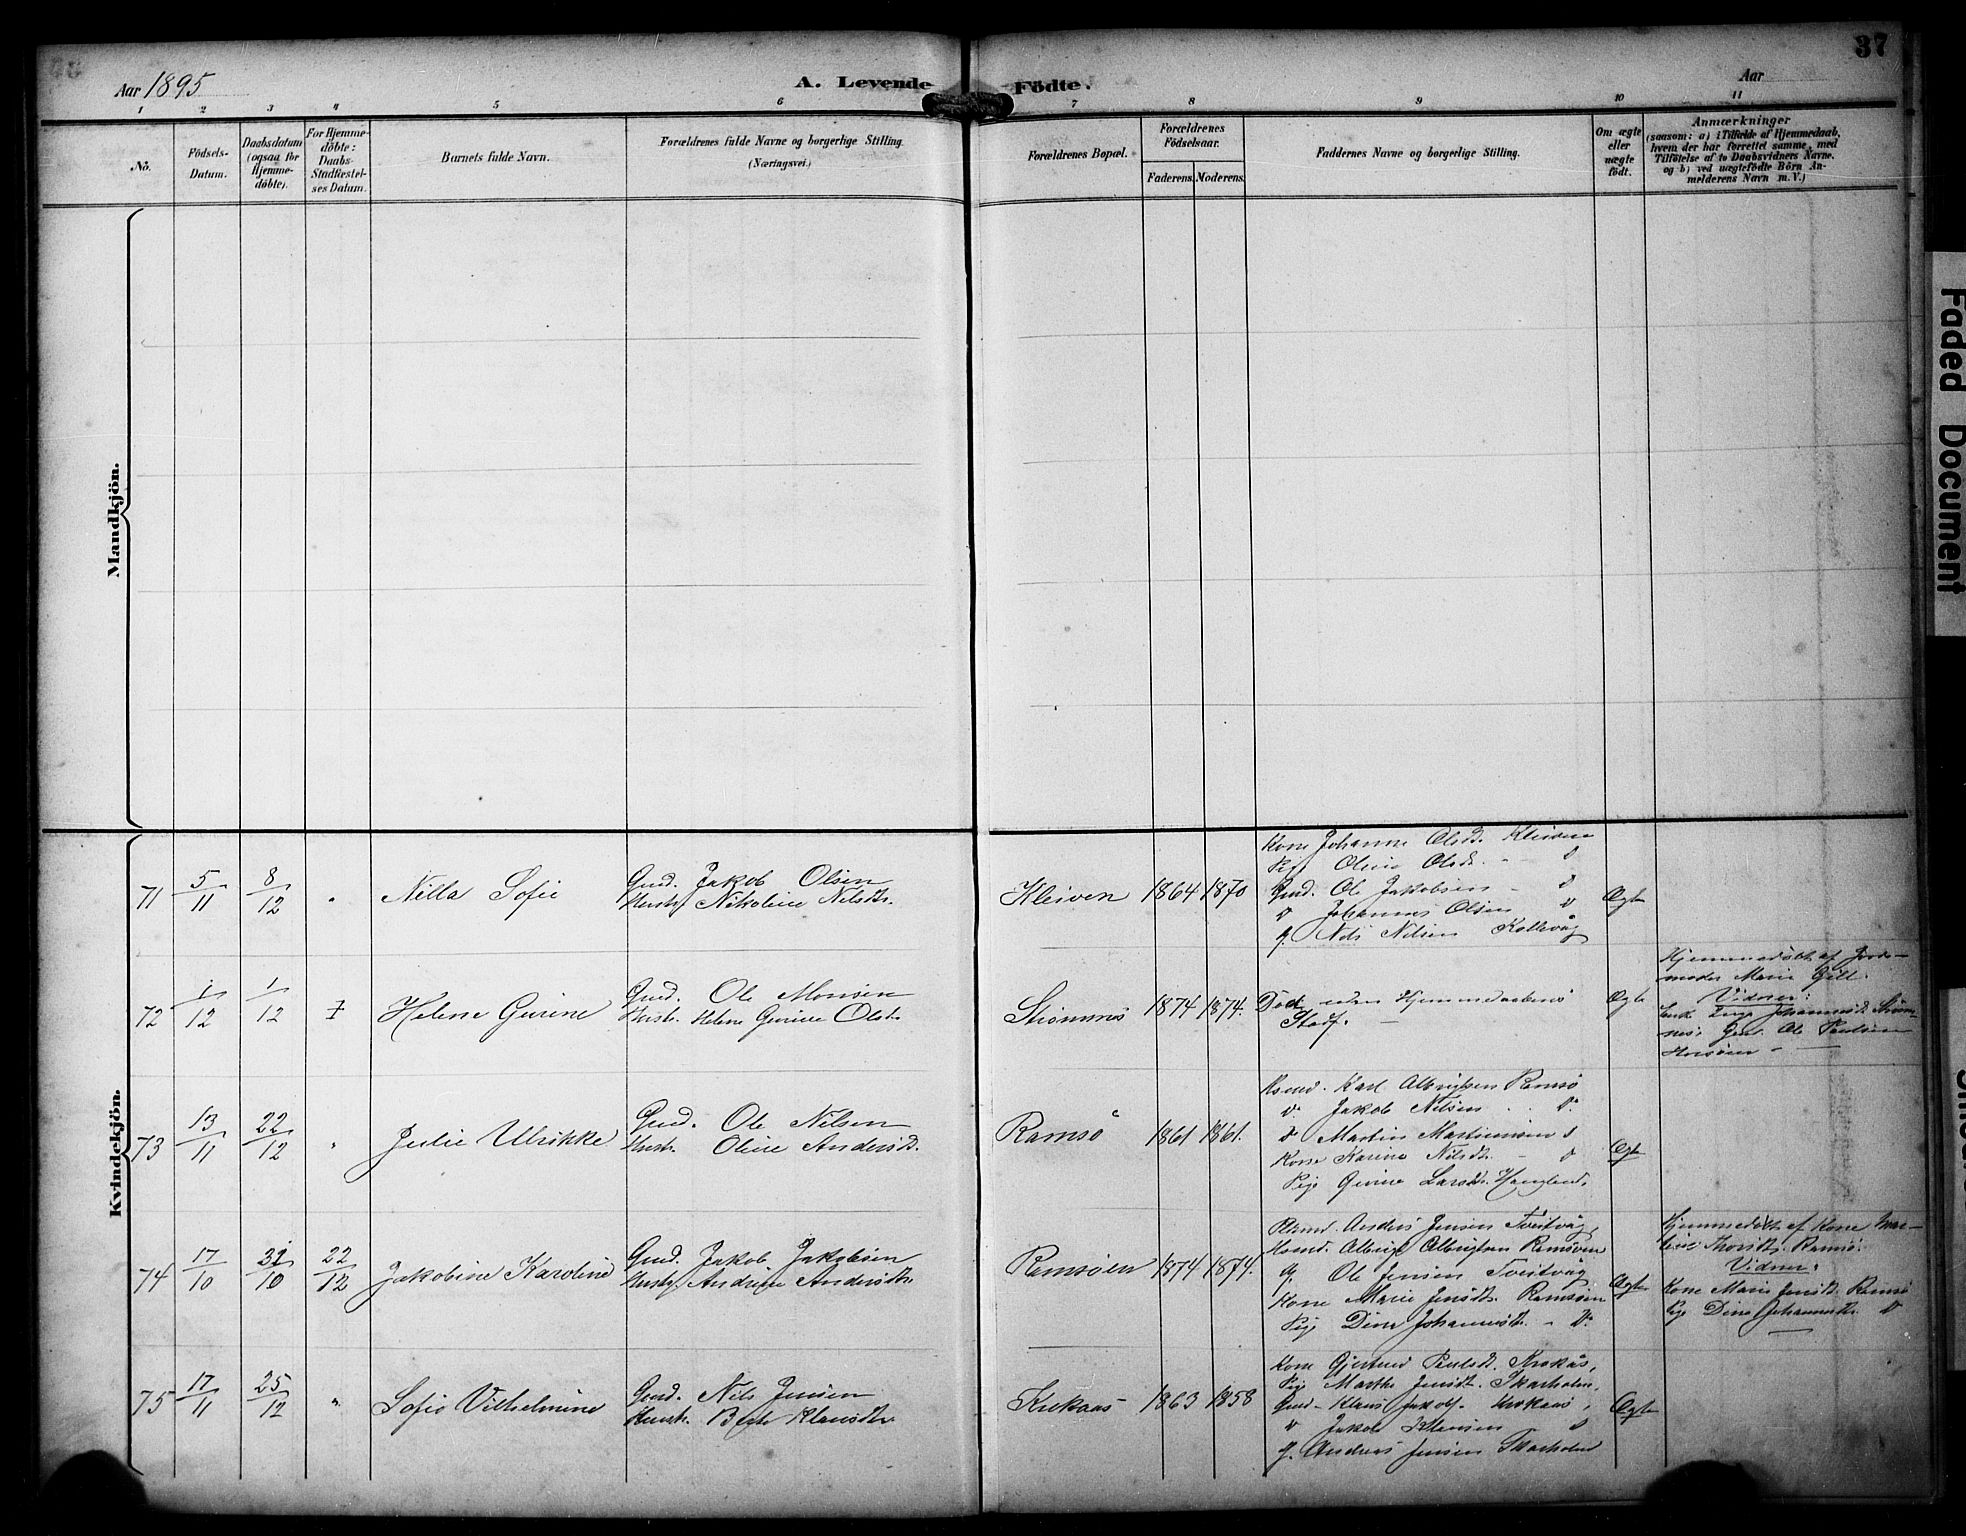 Aar 1895
A. Levende Födte.
Aar
37
1 2 3 4 5 6 7 8 9 10 11
No.
Födsels-
Datum.
Daabsdatum
(ogsaa for
Hjemme-
döbte).
For Hjemme-
döbte:
Daabs-
Stadfæstel-
ses Datum.
Barnets fulde Navn.
Forældrenes fulde Navne og borgerlige Stilling.
(Næringsvei.)
Forældrenes Bopæl.
Forældrenes
Födselsaar.
Faderens. Moderens.
Faddernes Navne og borgerlige Stilling.
Om ægte
eller
uægte
födt.
Anmærkninger
(saasom: a) i Tilfælde af Hjemmedaab,
hvem der har forrettet samme, med
Tilföielse af to Daabsvidners Navne,
og b) ved uægtefödte Börn An-
melderens Navn m. V.)
Mandkjön.
Kvindekjön.
71 5/11 8/12 " Nilla Sofie
Gmd. Jakob Olsen
Hustr. Nikoline Nilsdtr.
Kleiven 1864 1870
Kone Johanne Olsdt. Kleiven
Pige Oline Olsdt. - D
Gmd. Ole Jakobsen - D
D Johannes Olsen D
G. Nils Nilsen Kollevåg
Ægte
72 1/12 1/12 Helene Gurine
Gmd. Ole Monsen
Hustr. Helene Gurine Olsdtr.
Strömnes 1874 1874.
Död uden Hjemmedaabens
Stadf. -
Ægte
Hjemmedöbt af Jorde-
moder Marie Gill.
Vidner:
Enke Johannesdt. Ström-
nes, Gmd. Ole Paulsen
73 13/11 22/12 " Julie Ulrikke
Gmd. Ole Nilsen
Hustr. Oline Andersdt.
Ramsö 1861 1861.
Karl Albrigtsen Ramsö
D. Jakob Nilsen - D.
D Martin Martinussen D
Kone Karine Nilsdt. - D
Pige Gurine Larsdt.
Ægte
74 17/10 31/10 22/12 Jakobine Karoline
Gmd. Jakob Jakobsen
Hustr. Andrine Andersdtr.
Ramsöen 1874 1874.
Anders Jensen Tveitvåg,
Albrigt Albrigtsen Ramsöen
G. Ole Jensen Tveitvåg
Kone Marie Jensdt. Ramsöen
Pige Dine Johannesdt. - D.
Ægte
Hjemmedöbt af Kone
Thorsdt. Ramsö.
Vidner:
Kone Marie Jensdt. Ramsö
Pige Dine Johannesdt. D
75 17/11 25/12 " Sofie Vilhelmine
Gmd. Nils Jensen
Hustr. Klausdtr.
Krokaas 1863 1858
Kone Gjertrud Paulsdt. Krokås,
Pige Marthe Jensdt. Skarholm,
Gmd. Klaus Jakobs. Krokaas,
D Jakob Klausen D
G. Andreas Jensen Skarholm
Ægte
Faded Document